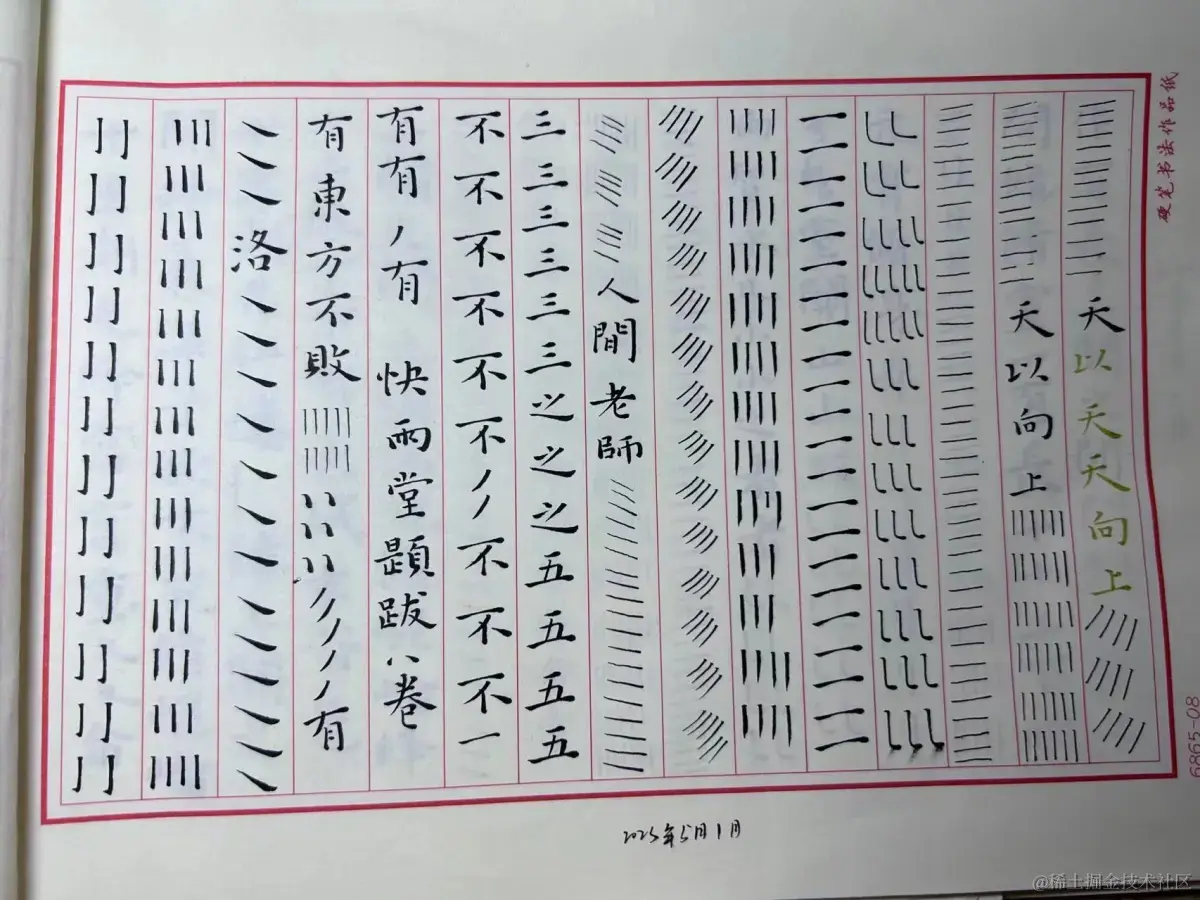 硬笔书法作品纸
6865-08
天以天天向上
天以向上
人間老師
三三三三三三之之之五五五五
不不不不不不不不不一
有有有快雨堂題跋八卷
有東方不敗有
洛
2025年5月1月
@稀土掘金技术社区